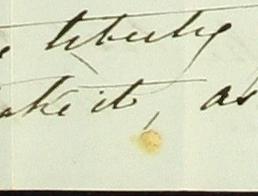 e liberty
ake it, as